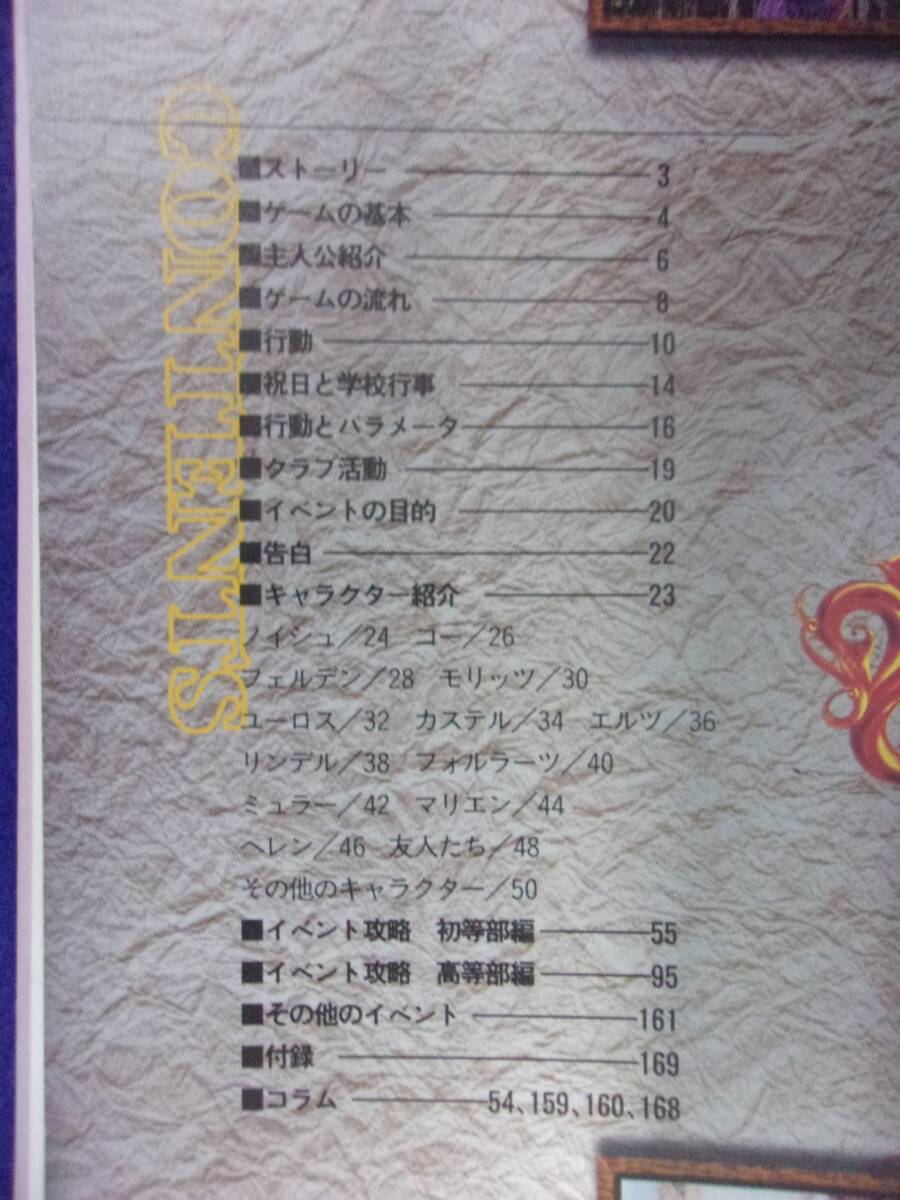 CONTENTS
■ストーリー 3
■ゲームの基本 4
■主人公紹介 6
■ゲームの流れ 8
■行動 10
■祝日と学校行事 14
■行動とパラメータ 16
■クラブ活動 19
■イベントの目的 20
■告白 22
■キャラクター紹介 23
ノイシュ／24　コー／26
フェルデン／28　モリッツ／30
ユーロス／32　カステル／34　エルツ／36
リンデル／38　フォルラーツ／40
ミュラー／42　マリエン／44
ヘレン／46　友人たち／48
その他のキャラクター／50
■イベント攻略　初等部編 55
■イベント攻略　高等部編 95
■その他のイベント 161
■付録 169
■コラム 54、159、160、168